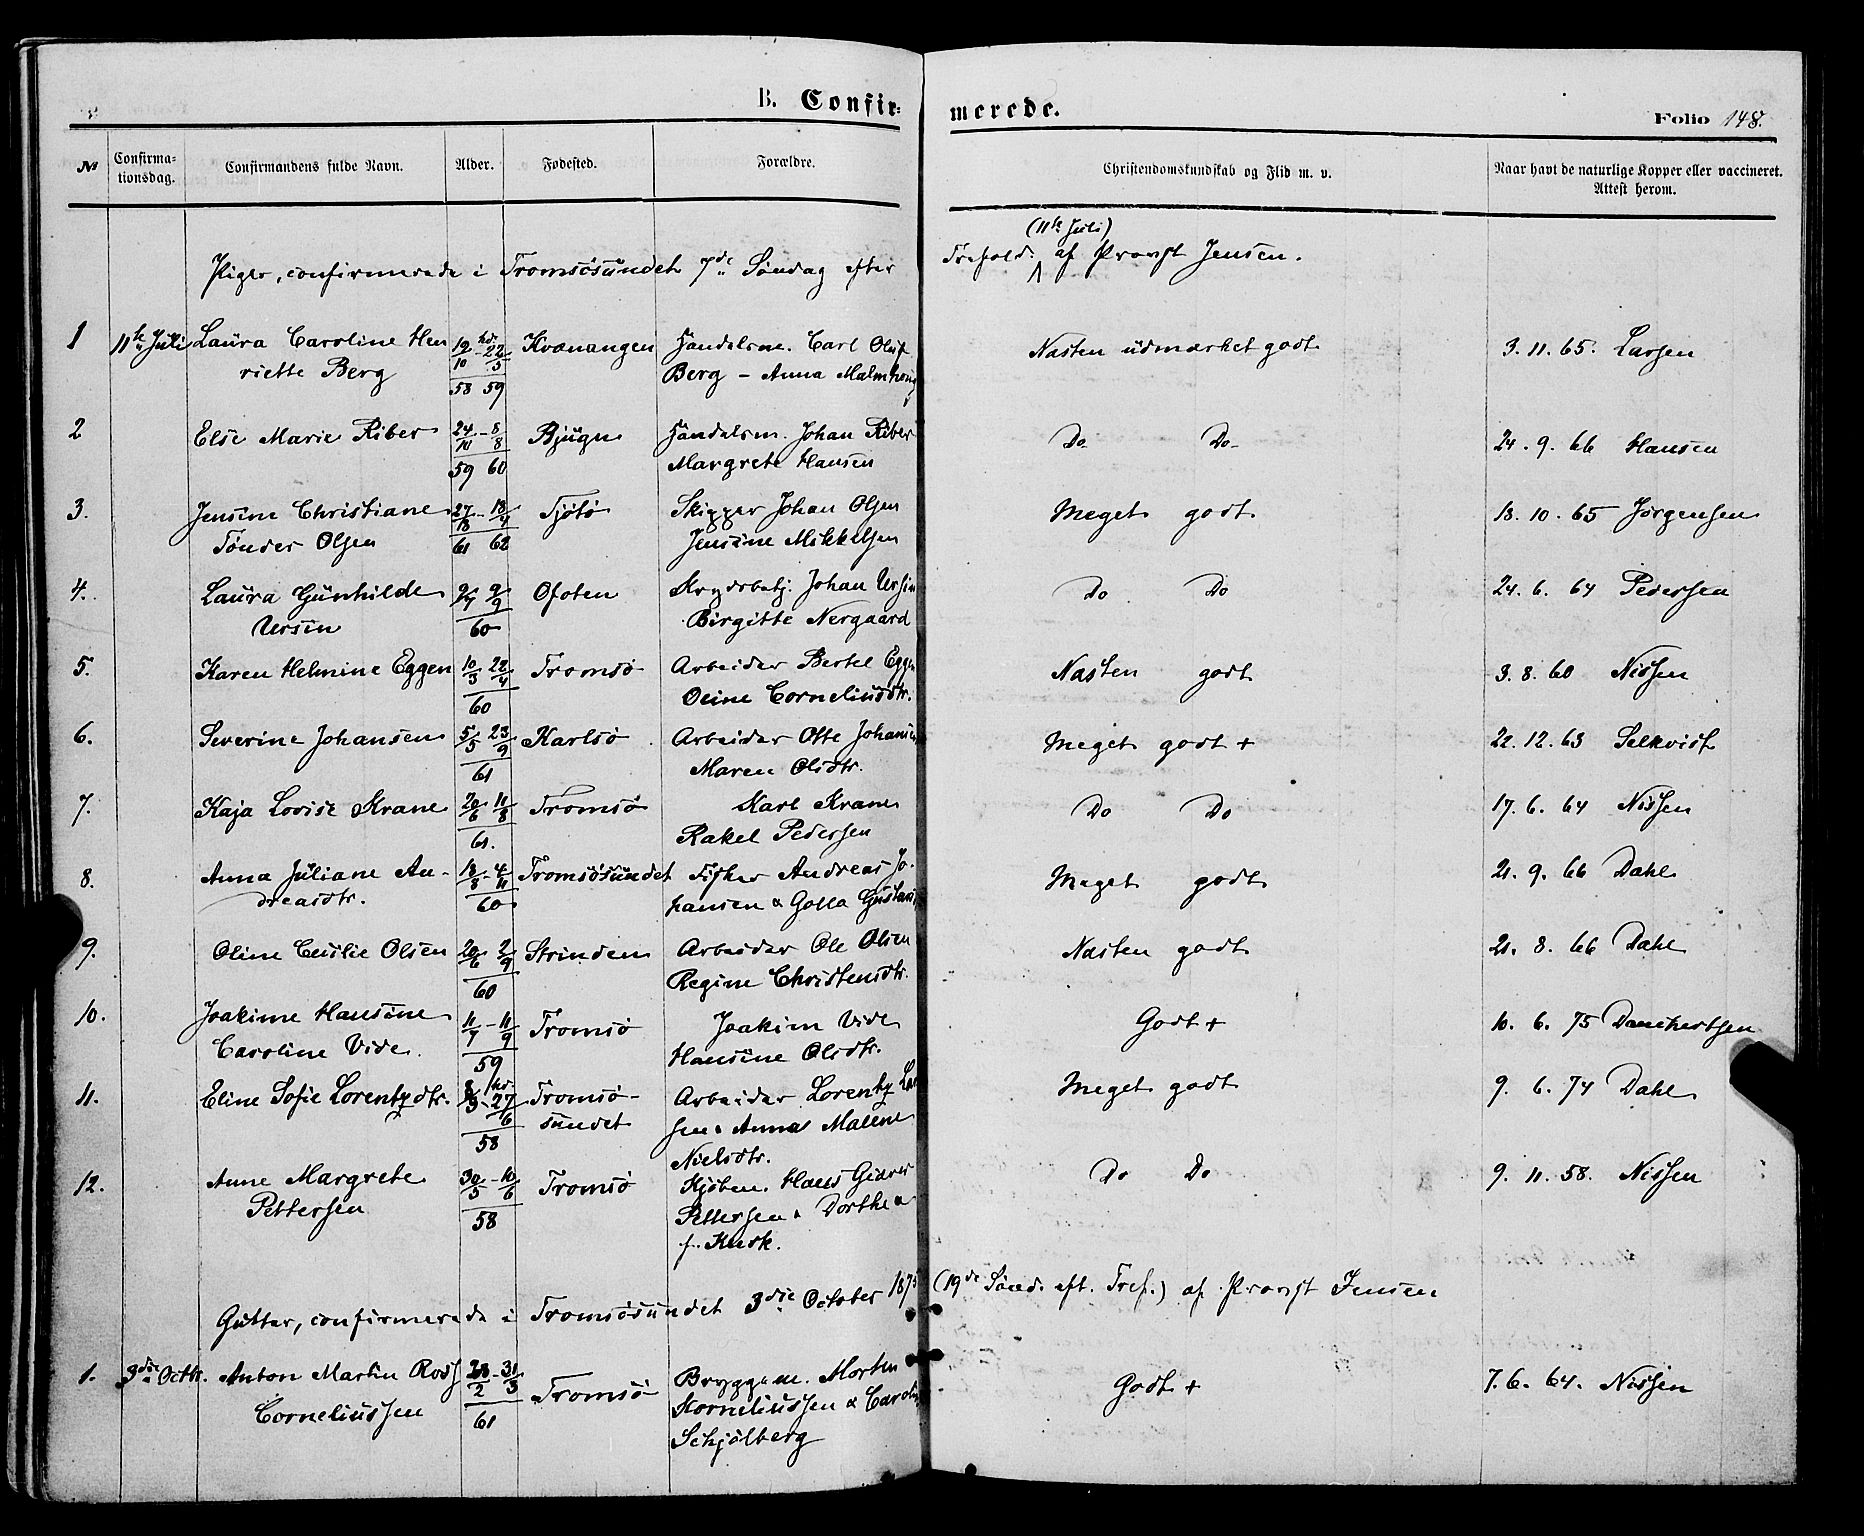 B. Confir=
merede.
Folio 148.
№ Confirma-tionsdag. Confirmandens fulde Navn. Alder. Fødested. Forældre. Christendomskundskab og Flid m. v. Naar havt de naturlige Kopper eller vaccineret. Attest herom.
Piger, confirmerede i Tromsösundet 7de Söndag efter
(11te Juli)
Trefold. af Provst Jensen.
1 11te Juli Laura Caroline Hen 19/10 - 22/5 Kvænangen Handelsm. Carl Oluf Næsten üdmærket godt 3. 11. 65. Larsen
riette Berg 58 59 Berg - Anna
2 Else Marie Riber 24/10 - 8/8 Bjügn Handelsm. Johan Riber Do Do 24. 9. 66 Hansen
59 60 Margrete Hansen
3. Jensine Christiane 27/18 - 18/4 Tjötö Skipper Johan Olsen Meget godt 18. 10. 65 Jörgensen
Tönder Olsen 61 62 Jensine Mikkelsen
4. Laura Günhilde 9/9 Ofoten Johan Ursin Do Do 24. 6. 64 Pedersen
Ursin 60 Birgitte Nergaard
5. Karen Helmine Eggen 10/3 22/4 Tromsö Arbeider Bertel Eggen Næsten godt 3. 8. 60 Nissen
60 Oline Corneliusdtr.
6. Severine Johansen 5/5 23/9 Karlsö Arbeider Ole Johansen Meget godt + 22. 12. 63 Selkvist
61 Maren Olsdtr.
7. Kaja Lovise Krane 20/6 11/8 Tromsö Karl Krane Do Do 17. 6. 64 Nissen
61. Rakel Pedersen
8. Anna Juliane An- 18/8 - 4/11 Tromsösündet Fisker Andreas Jo- Meget godt 21. 9. 66 Dahl
dreasdtr. 60 hansen &
9. Oline Cecilie Olsen 20/6 2/9 Strinden Arbeider Ole Olsen Næsten godt 21. 8. 66 Dahl
60 Regine Christensdtr.
10. Joakime Hansine 11/7 - 11/9 Tromsö Joakim Vide Godt + 10. 6. 75 Danckertsen
Caroline Vide. 59 Hansine Olsdtr.
11. Eline Sofie Lorentzdtr. 27/6 Tromsö- Arbeider Lorentz Lar Meget godt 9. 6. 74 Dahl
58 sundet sen & Anna Malene
Nielsdtr.
12. Anne Margrete 30/5 - 10/6 Tromsö Kjöbm. Hans Giæver Do Do 9. 11. 58. Nissen
Pettersen 58 Pettersen & Dorthea
f. Kurk.
Gutter, confirmerede i Tromsösundet 3die October 1875 (19de Sönd. eft. Tref.) af Provst Jensen
1. 3die Octbr. Anton Martin Rosf 28/2 - 31/3 Tromsö Bryggem. Morten Godt + 7. 6. 64. Nissen
Corneliussen 61 Korneliussen & Caroline
Schjölberg